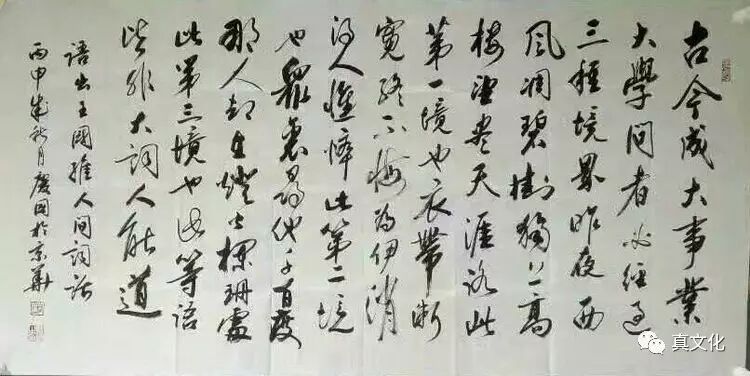 古今成大事業
大學問者必經過
三種境界昨夜西
風凋碧樹獨上高
樓望盡天涯路此
第一境也衣帶漸
寬終不悔為伊消
得人憔悴此第二境
也眾裏尋他千百度
那人却在燈火欄珊處
此第三境也此等語
皆非大詞人能道
語出王國維人間詞話
丙申歲秋月慶國於京華
真文化